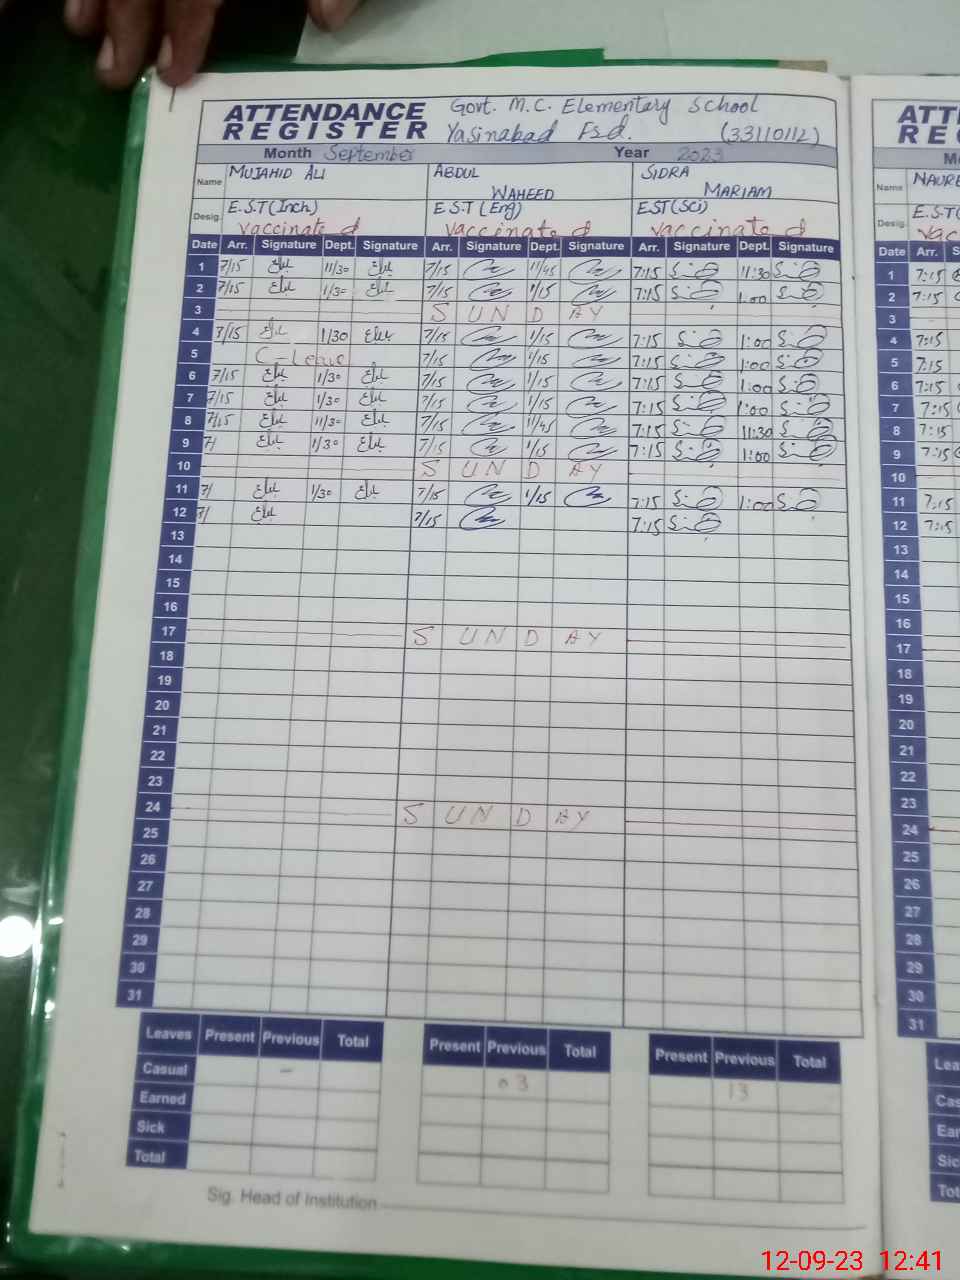 ATTENDANCE REGISTER Govt. M.C. Elementary School
Yasinabad Fsd. (33110112)
Month September Year 2023
Name MUJAHID ALI ABDUL WAHEED SIDRA MARIAM
Desig. E.S.T(Inch) E.S.T(Eng) EST(Sci)
vaccinated vaccinated vaccinated
Date Arr. Signature Dept. Signature Arr. Signature Dept. Signature Arr. Signature Dept. Signature
1 7/15 11/30 7/15 11/45 7:15 11:30
2 7/15 1/30 7/15 1/15 7:15 1:00
3 SUNDAY
4 7/15 1/30 7/15 1/15 7:15 1:00
5 C-Leave 7/15 1/15 7:15 1:00
6 7/15 1/30 7/15 1/15 7:15 1:00
7 7/15 1/30 7/15 1/15 7:15 1:00
8 7/15 11/30 7/15 11/45 7:15 11:30
9 7/ 1/30 7/15 1/15 7:15 1:00
10 SUNDAY
11 7/ 1/30 7/15 1/15 7:15 1:00
12 7/ 7/15 7:15
13
14
15
16
17 SUNDAY
18
19
20
21
22
23
24 SUNDAY
25
26
27
28
29
30
31
Leaves Present Previous Total Present Previous Total Present Previous Total
Casual - 03 13
Earned
Sick
Total
Sig. Head of Institution
Name NAURE
Desig. E.S.T(
Date Arr.
1 7:15
2 7:15
3
4 7:15
5 7:15
6 7:15
7 7:15
8 7:15
9 7:15
10
11 7:15
12 7:15
13
14
15
16
17
18
19
20
21
22
23
24
25
26
27
28
29
30
31
12-09-23 12:41